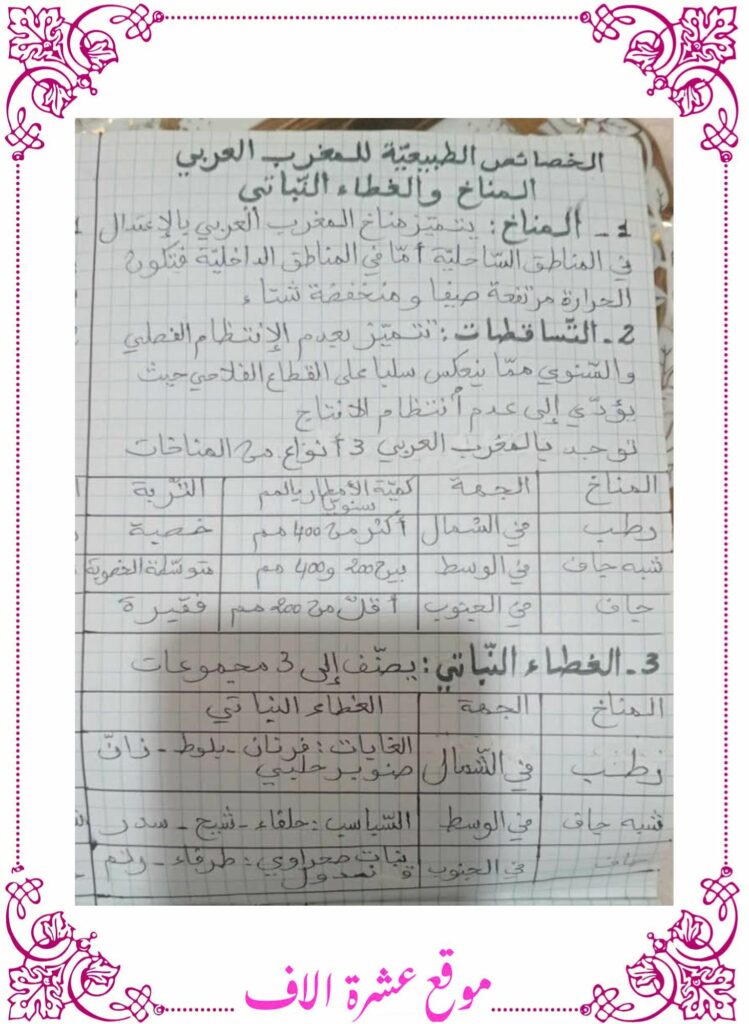 الخصائص الطبيعيّة للمغرب العربي
المناخ والغطاء النّباتي
1 - المناخ: يتميّز مناخ المغرب العربي بالإعتدال
في المناطق السّاحليّة أمّا في المناطق الداخليّة فتكون
الحرارة مرتفعة صيفا و منخفضة شتاء
2 - التّساقطات: تتميّز بعدم الإنتظام الفصلي
والسّنوي ممّا ينعكس سلبا على القطاع الفلاحي حيث
يؤدّي إلى عدم أنتظام الانتاج
توجد بالمغرب العربي 3 أنواع من المناخات
المناخ الجهة كميّة الأمطار بالمم سنويّا التّربة
رطب في الشمال أكثر من 400 مم خصبة
شبه جاف في الوسط بين 200 و 400 مم متوسّطة الخصوبة
جاف في الجنوب أقلّ من 200 مم فقيرة
3 - الغطاء النّباتي: يصنّف إلى 3 مجموعات
المناخ الجهة الغطاء النباتي
رطب في الشّمال الغابات: فرنان - بلوط - زانّ
صنوبر حلبي
شبه جاف في الوسط السّباسب: حلفاء - شيح - سدر
جاف في الجنوب نبات صحراوي: طرفاء - رتم
و
موقع عشرة الاف